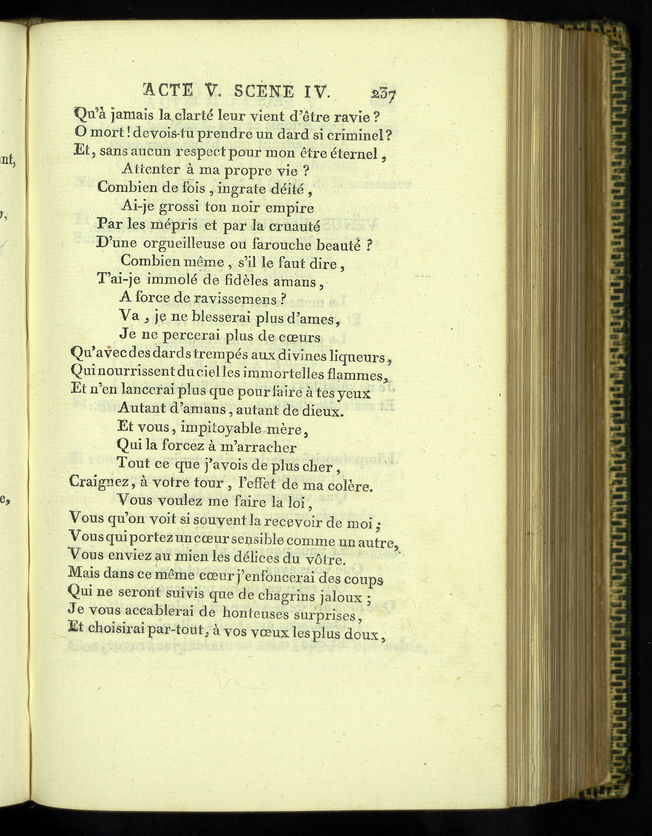 ACTE V. SCÈNE IV. 237
Qu'à jamais la clarté leur vient d'être ravie ?
O mort ! devois-tu prendre un dard si criminel ?
Et, sans aucun respect pour mon être éternel ,
Attenter à ma propre vie ?
Combien de fois , ingrate déité ,
Ai-je grossi ton noir empire
Par les mépris et par la cruauté
D'une orgueilleuse ou farouche beauté ?
Combien même , s'il le faut dire ,
T'ai-je immolé de fidèles amans ,
A force de ravissemens ?
Va , je ne blesserai plus d'ames ,
Je ne percerai plus de cœurs
Qu'avec des dards trempés aux divines liqueurs ,
Qui nourrissent du ciel les immortelles flammes ,
Et n'en lancerai plus que pour faire à tes yeux
Autant d'amans , autant de dieux.
Et vous , impitoyable mère ,
Qui la forcez à m'arracher
Tout ce que j'avois de plus cher ,
Craignez , à votre tour , l'effet de ma colère.
Vous voulez me faire la loi ,
Vous qu'on voit si souvent la recevoir de moi ;
Vous qui portez un cœur sensible comme un autre ,
Vous enviez au mien les délices du vôtre.
Mais dans ce même cœur j'enfoncerai des coups
Qui ne seront suivis que de chagrins jaloux ;
Je vous accablerai de honteuses surprises ,
Et choisirai par-tout , à vos vœux les plus doux ,
nt,
e,